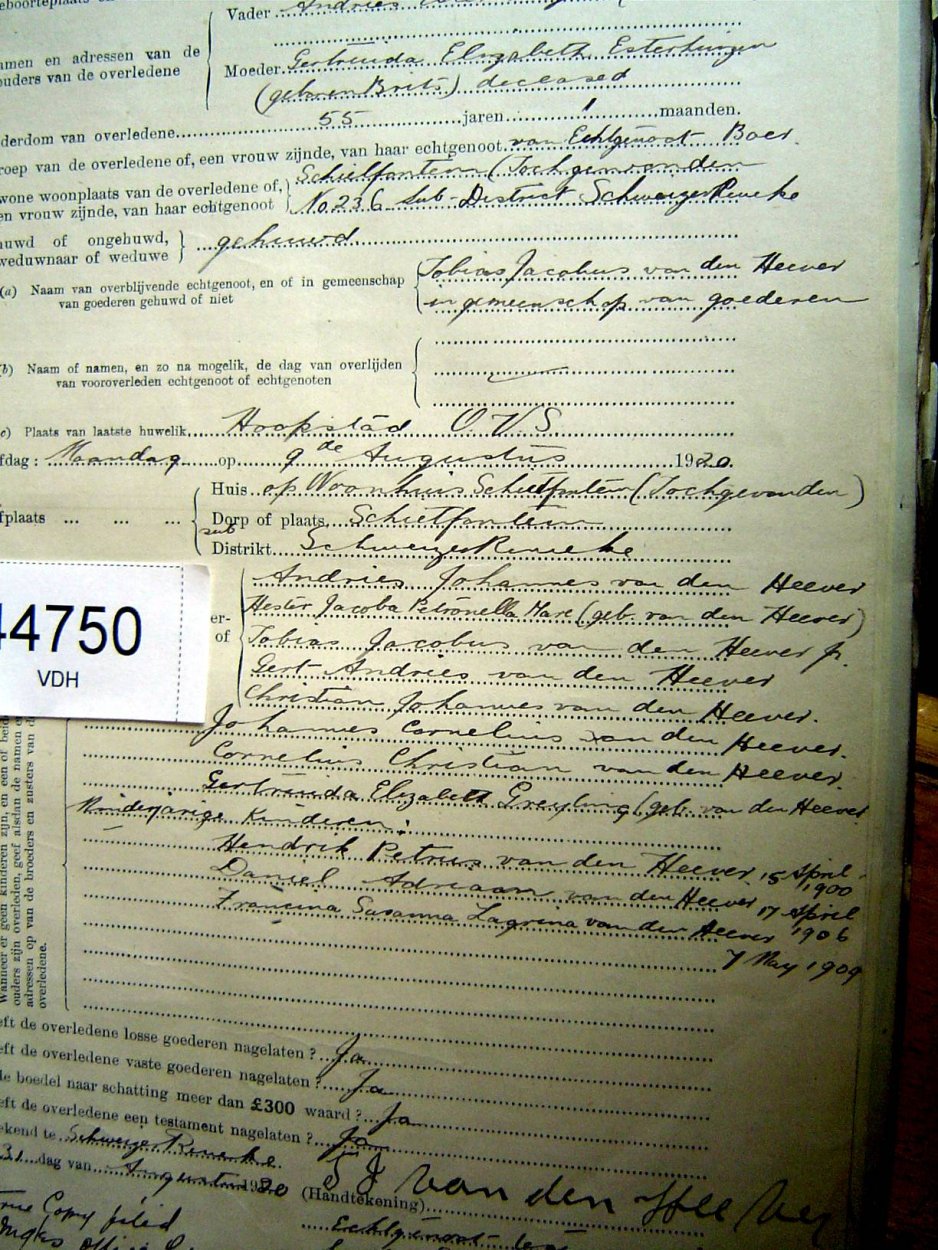 Vader Andries
amen en adressen van de
ouders van de overledene
Moeder Gertruida Elizabeth Esterhuizen
(geboren Brits) deceased
derdom van overledene 55 jaren 1 maanden.
roep van de overledene of, een vrouw zijnde, van haar echtgenoot van Echtgenoot Boer
wone woonplaats van de overledene of,
en vrouw zijnde, van haar echtgenoot
Schietfontein (Tochgevonden
No 236 Sub-District Schweizer Reneke
huwd of ongehuwd,
weduwnaar of weduwe
gehuwd
(a) Naam van overblijvende echtgenoot, en of in gemeenschap
van goederen gehuwd of niet
Tobias Jacobus van den Heever
in gemeenschap van goederen
(b) Naam of namen, en zo na mogelik, de dag van overlijden
van vooroverleden echtgenoot of echtgenoten
c) Plaats van laatste huwelik Hoopstad O.V.S.
fdag: Maandag op 9de Augustus 1920.
Huis op Woonhuis Schietfontein (Tochgevonden)
fplaats ... ... ...
Dorp of plaats Schietfontein
sub
Distrikt Schweizer Reneke
Andries Johannes van den Heever
Hester Jacoba Petronella Mare (geb. van den Heever)
er-
of
Tobias Jacobus van den Heever jr.
Gert Andries van den Heever
Christian Johannes van den Heever.
44750
VDH
Johannes Cornelius van den Heever.
Cornelius Christian van den Heever.
Gertruida Elizabeth Greyling (geb. van den Heever
Minderjarige Kinderen:
Hendrik Petrus van den Heever 15 April 1900
Daniel Adriaan van den Heever 17 April 1906
Francina Susanna Lagrina van den Heever
7 May 1909
Wanneer er geen kinderen zijn, en een of beide
ouders zijn overleden, geef alsdan de namen e
adressen op van de broeders en zusters van d
overledene.
eft de overledene losse goederen nagelaten? Ja
eft de overledene vaste goederen nagelaten? Ja
de boedel naar schatting meer dan £300 waard? Ja
eft de overledene een testament nagelaten? Ja
ekend te Schweizer Reneke
31 dag van Augustus 1920
T J van den Heever
(Handtekening)
True Copy filed
Echtgenoot